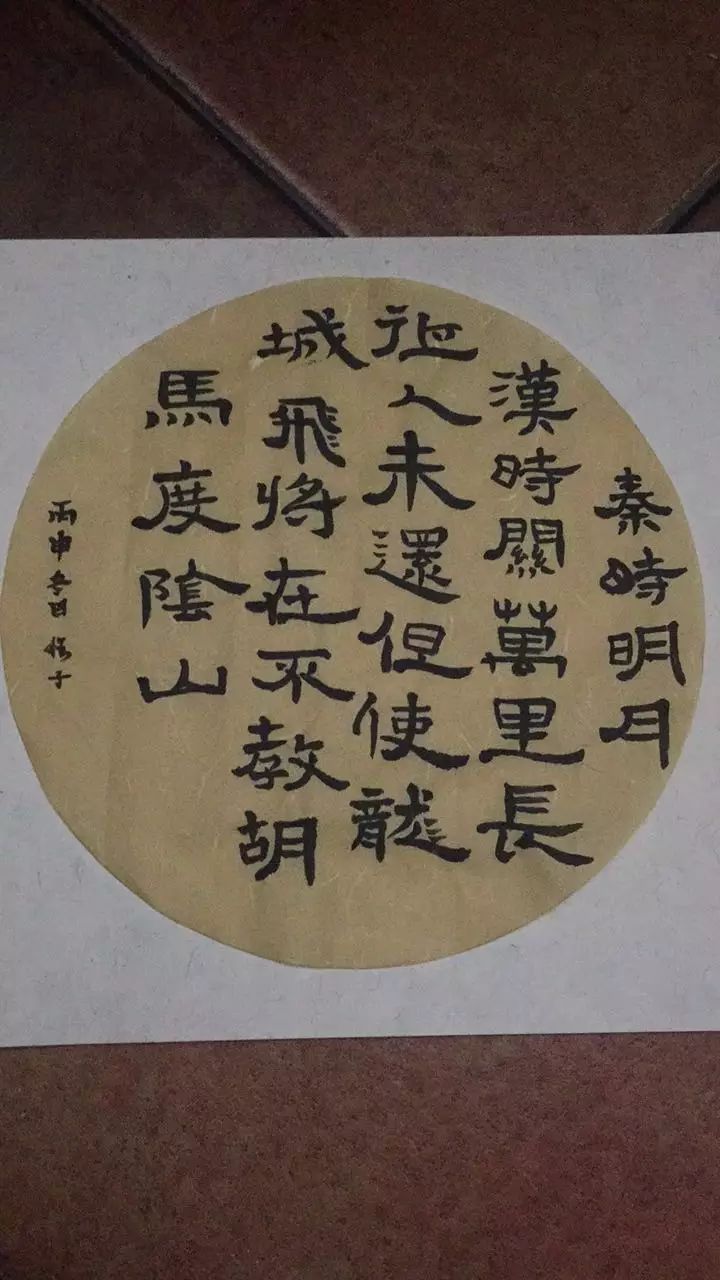 秦時明月
漢時關萬里長
征人未還但使龍
城飛將在不教胡
馬度陰山
丙申